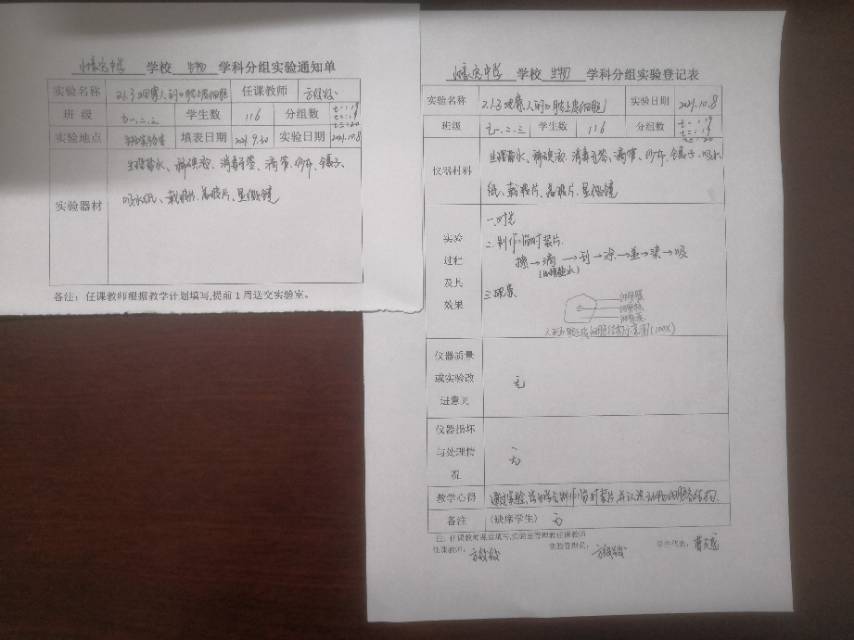 学校 生物 学科分组实验通知单
实验名称 2.1.3观察人的口腔上皮细胞 任课教师
班级 七一.二.三 学生数 116 分组数 七一:19 七二:19 七三:20
实验地点 生物实验室 填表日期 2021.9.30 实验日期 2021.10.8
实验器材
生理盐水、稀碘液、消毒牙签、滴管、纱布、镊子、
吸水纸、载玻片、盖玻片、显微镜
备注:任课教师根据教学计划填写,提前1周送交实验室。
学校 生物 学科分组实验登记表
实验名称 2.1.3观察人的口腔上皮细胞 实验日期 2021.10.8
班级 七一.二.三 学生数 116 分组数 七一:19 七二:19 七三:20
仪器材料
生理盐水、稀碘液、消毒牙签、滴管、纱布、镊子、吸水
纸、载玻片、盖玻片、显微镜
实验
过程
及其
效果
一.对光
二.制作临时装片
擦→滴→刮→涂→盖→染→吸
(生理盐水)
三.观察
细胞膜
细胞核
细胞质
人的口腔上皮细胞结构示意图(100X)
仪器质量
或实验改
进意见
无
仪器损坏
与处理情
况
无
教学心得 通过实验,学生学会制作临时装片,并认识动物细胞基本结构.
备注 (缺席学生) 无
任课教师: 实验管理员: 学生代表: